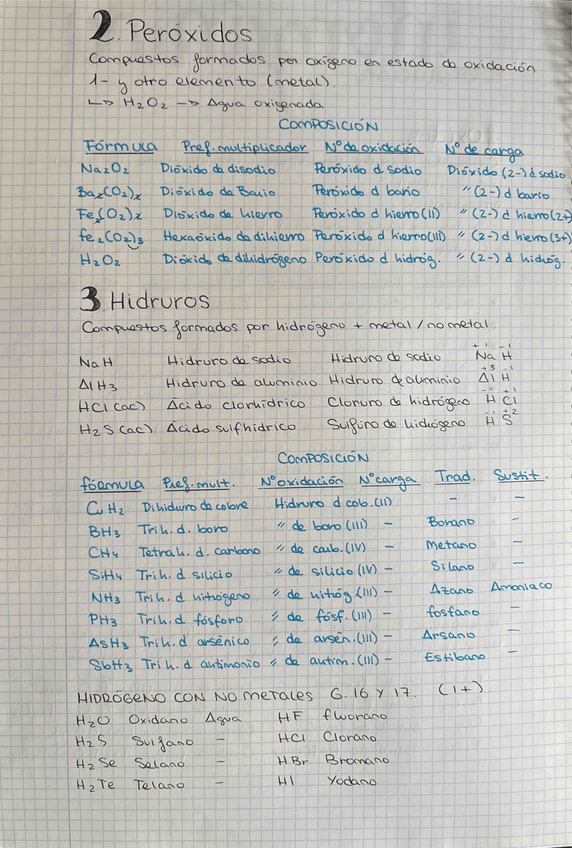 2. Peróxidos
Compuestos formados por oxígeno en estado de oxidación
1- y otro elemento (metal).
↳ H₂O₂ → Agua oxigenada
COMPOSICIÓN
Fórmula Pref. multiplicador Nº de oxidación Nº de carga
Na₂O₂ Dióxido de disodio Peróxido d sodio Dióxido (2-) d sodio
Ba₂(O₂)₂ Dióxido de Bario Peróxido d bario " (2-) d bario
Fe₂(O₂)₂ Dióxido de hierro Peróxido d hierro (II) " (2-) d hierro (2+
fe₂(O₂)₃ Hexaóxido de dihierro Peróxido d hierro (III) " (2-) d hierro (3+)
H₂O₂ Dióxido de dihidrógeno Peróxido d hidróg. " (2-) d hidróg.
3 Hidruros
Compuestos formados por hidrógeno + metal / no metal
NaH Hidruro de sodio Hidruro de sodio +1 -1 Na H
AlH₃ Hidruro de aluminio Hidruro de aluminio +3 -1 Al H
HCl (ac) Ácido clorhídrico Cloruro de hidrógeno H Cl
H₂S (ac) Ácido sulfhídrico Sulfuro de hidrógeno H S
COMPOSICIÓN
fórmula Pref. mult. Nº oxidación Nº carga Trad. Sustit.
CuH₂ Dihidruro de cobre Hidruro d cob. (II) - -
BH₃ Trih. d. boro " de boro (III) - Borano -
CH₄ Tetrah. d. carbono " de carb. (IV) - Metano -
SiH₄ Trih. d silicio " de silicio (IV) - Silano -
NH₃ Trih. d nitrógeno " de nitróg. (III) - Azano Amoniaco
PH₃ Trih. d fósforo " de fósf. (III) - fosfano -
AsH₃ Trih. d arsénico " de arsén. (III) - Arsano -
SbH₃ Trih. d antimonio " de autim. (III) - Estibano -
HIDRÓGENO CON NO METALES G. 16 Y 17. (1+)
H₂O Oxidano Agua HF fluorano
H₂S Sulfano - HCl Clorano
H₂Se Selano - HBr Bromano
H₂Te Telano - HI Yodano